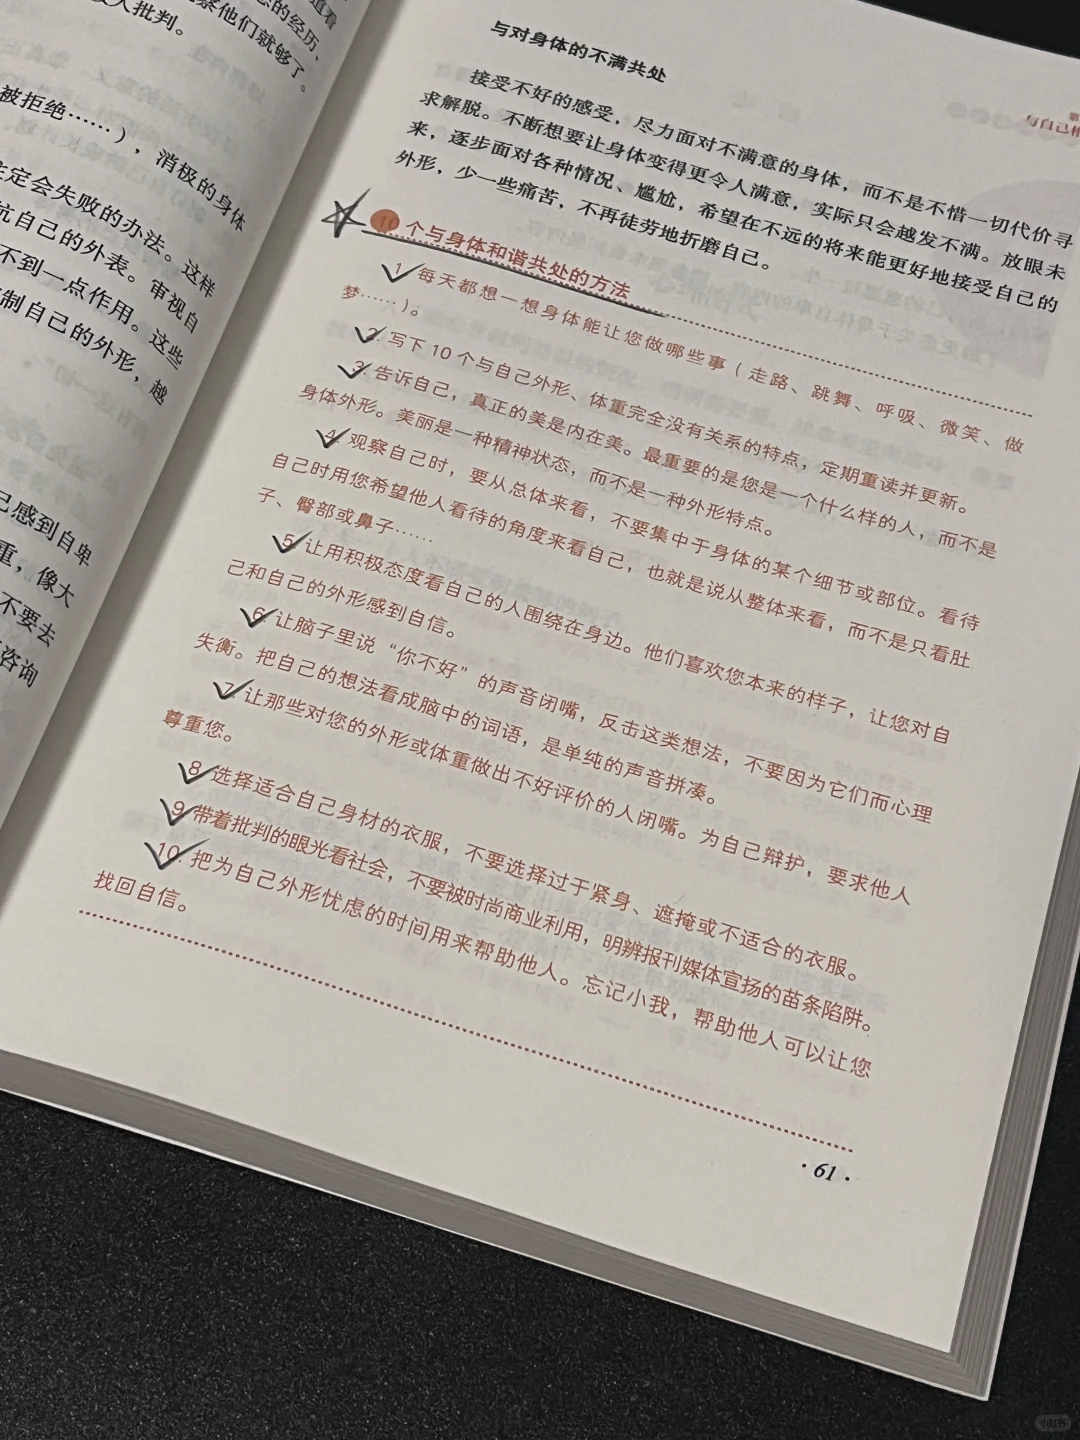 道看
的经历、
察他们就够了。
人批判。
被拒绝……），消极的身体
注定会失败的办法。这样
抗自己的外表。审视自
不到一点作用。这些
制自己的外形，越
己感到自卑
重，像大
不要去
咨询
与自己
与对身体的不满共处
接受不好的感受，尽力面对不满意的身体，而不是不惜一切代价寻
求解脱。不断想要让身体变得更令人满意，实际只会越发不满。放眼未
来，逐步面对各种情况、尴尬，希望在不远的将来能更好地接受自己的
外形，少一些痛苦，不再徒劳地折磨自己。
10 个与身体和谐共处的方法
1. 每天都想一想身体能让您做哪些事（走路、跳舞、呼吸、微笑、做
梦……）。
2. 写下 10 个与自己外形、体重完全没有关系的特点，定期重读并更新。
3. 告诉自己，真正的美是内在美。最重要的是您是一个什么样的人，而不是
身体外形。美丽是一种精神状态，而不是一种外形特点。
4. 观察自己时，要从总体来看，不要集中于身体的某个细节或部位。看待
自己时用您希望他人看待的角度来看自己，也就是说从整体来看，而不是只看肚
子、臀部或鼻子……
5. 让用积极态度看自己的人围绕在身边。他们喜欢您本来的样子，让您对自
己和自己的外形感到自信。
6. 让脑子里说“你不好”的声音闭嘴，反击这类想法，不要因为它们而心理
失衡。把自己的想法看成脑中的词语，是单纯的声音拼凑。
7. 让那些对您的外形或体重做出不好评价的人闭嘴。为自己辩护，要求他人
尊重您。
8. 选择适合自己身材的衣服，不要选择过于紧身、遮掩或不适合的衣服。
9. 带着批判的眼光看社会，不要被时尚商业利用，明辨报刊媒体宣扬的苗条陷阱。
10. 把为自己外形忧虑的时间用来帮助他人。忘记小我，帮助他人可以让您
找回自信。
· 61 ·
小红书